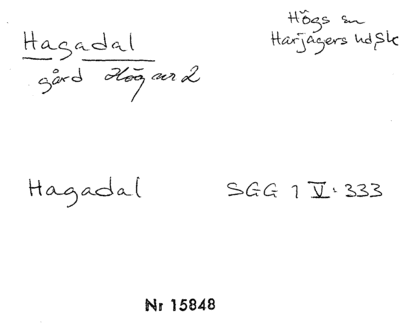 Hagadal
gård Hög nr 2
Högs sn
Harjagers hd, Sk
Hagadal SGG 1 V: 333
Nr 15848